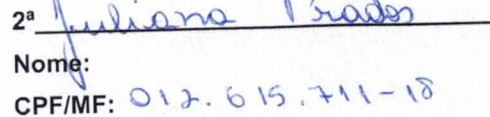 2ª Juliana Prados
Nome:
CPF/MF: 012.615.711-18